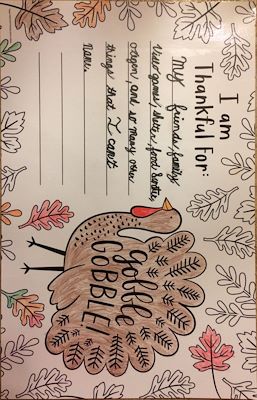 I am
Thankful For:
My friends, family,
Video games, shelter, food
and so many other
things that I can't
name.
gobble
GOBBLE!